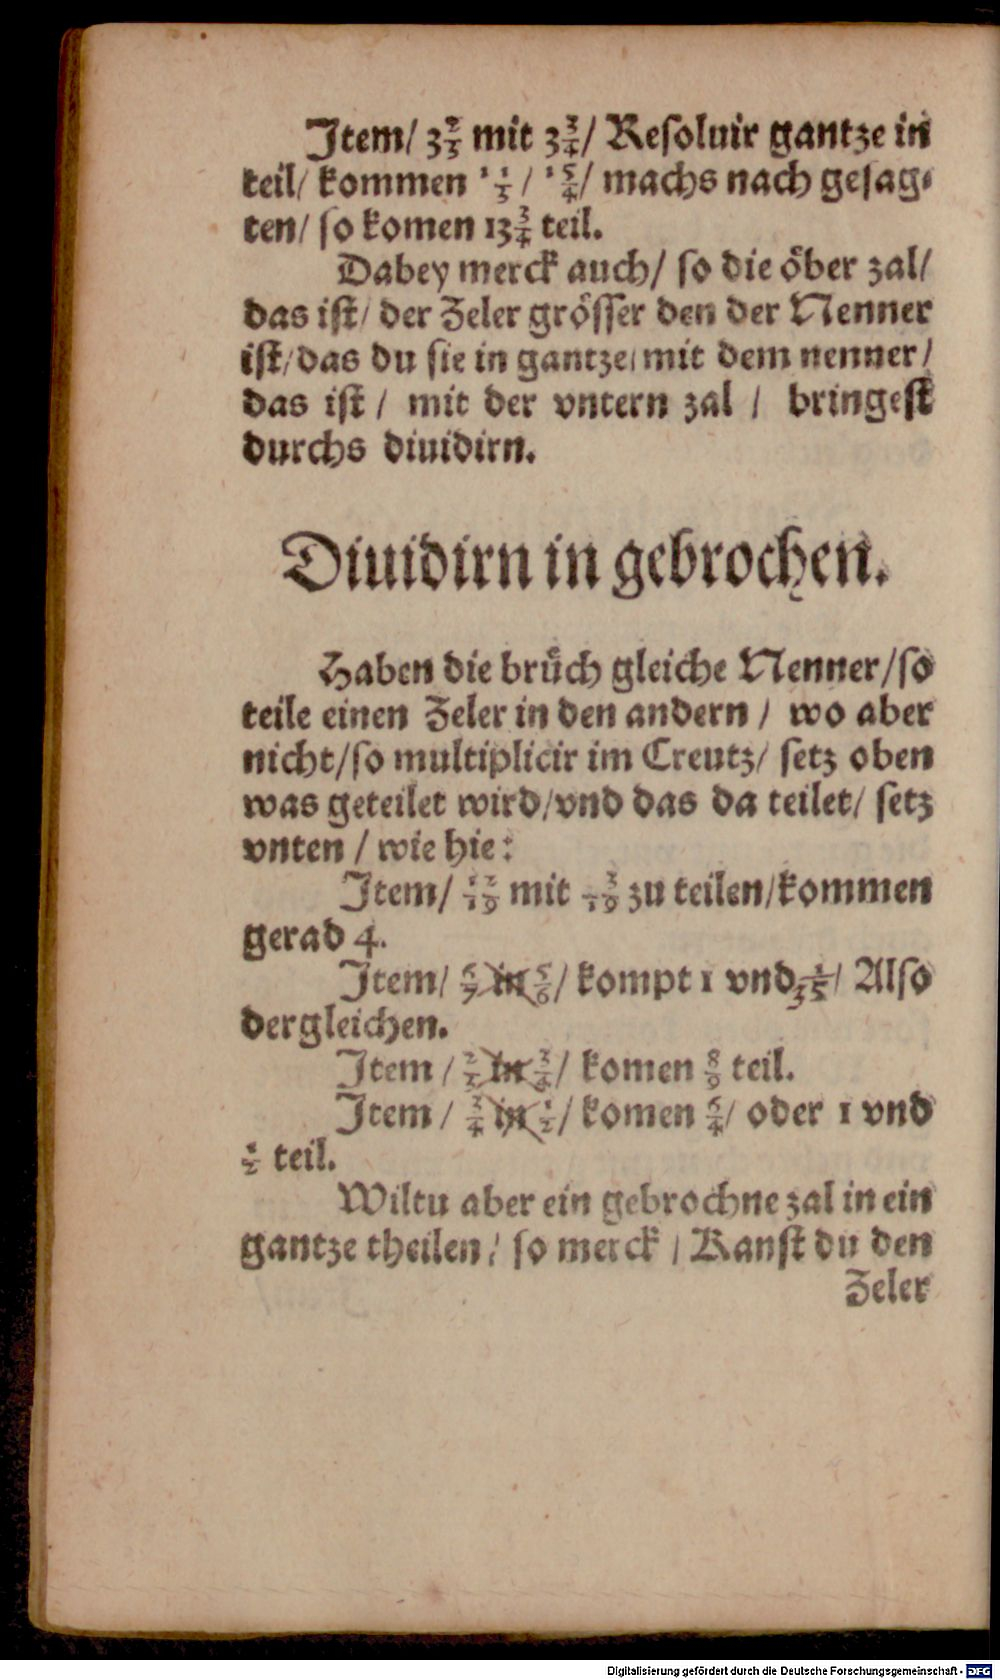 Item/ 3 2/3 mit 3 3/4/ Resoluir gantze in
teil/ kommen 11/3 / 15/4/ machs nach gesag⸗
ten/ so komen 13 3/4 teil.
Dabey merck auch/ so die öber zal/
das ist/ der Zeler grösser den der Nenner
ist/das du sie in gantze/mit dem nenner/
das ist / mit der vntern zal / bringest
durchs diuidirn.
Diuidirn in gebrochen.
Haben die brüch gleiche Nenner/so
teile einen Zeler in den andern / wo aber
nicht/so multiplicir im Creutz/ setz oben
was geteilet wird/vnd das da teilet/ setz
vnten / wie hie:
Item/ 12/19 mit 3/19 zu teilen/kommen
gerad 4.
Item/ 6/7 in 5/6/ kompt 1 vnd 1/35/ Also
dergleichen.
Item / 2/3 in 3/4/ komen 8/9 teil.
Item / 3/4 in 1/2/ komen 6/4/ oder 1 vnd
1/2 teil.
Wiltu aber ein gebrochne zal in ein
gantze theilen/ so merck / Kanst du den
Zeler
Digitalisierung gefördert durch die Deutsche Forschungsgemeinschaft - DFG